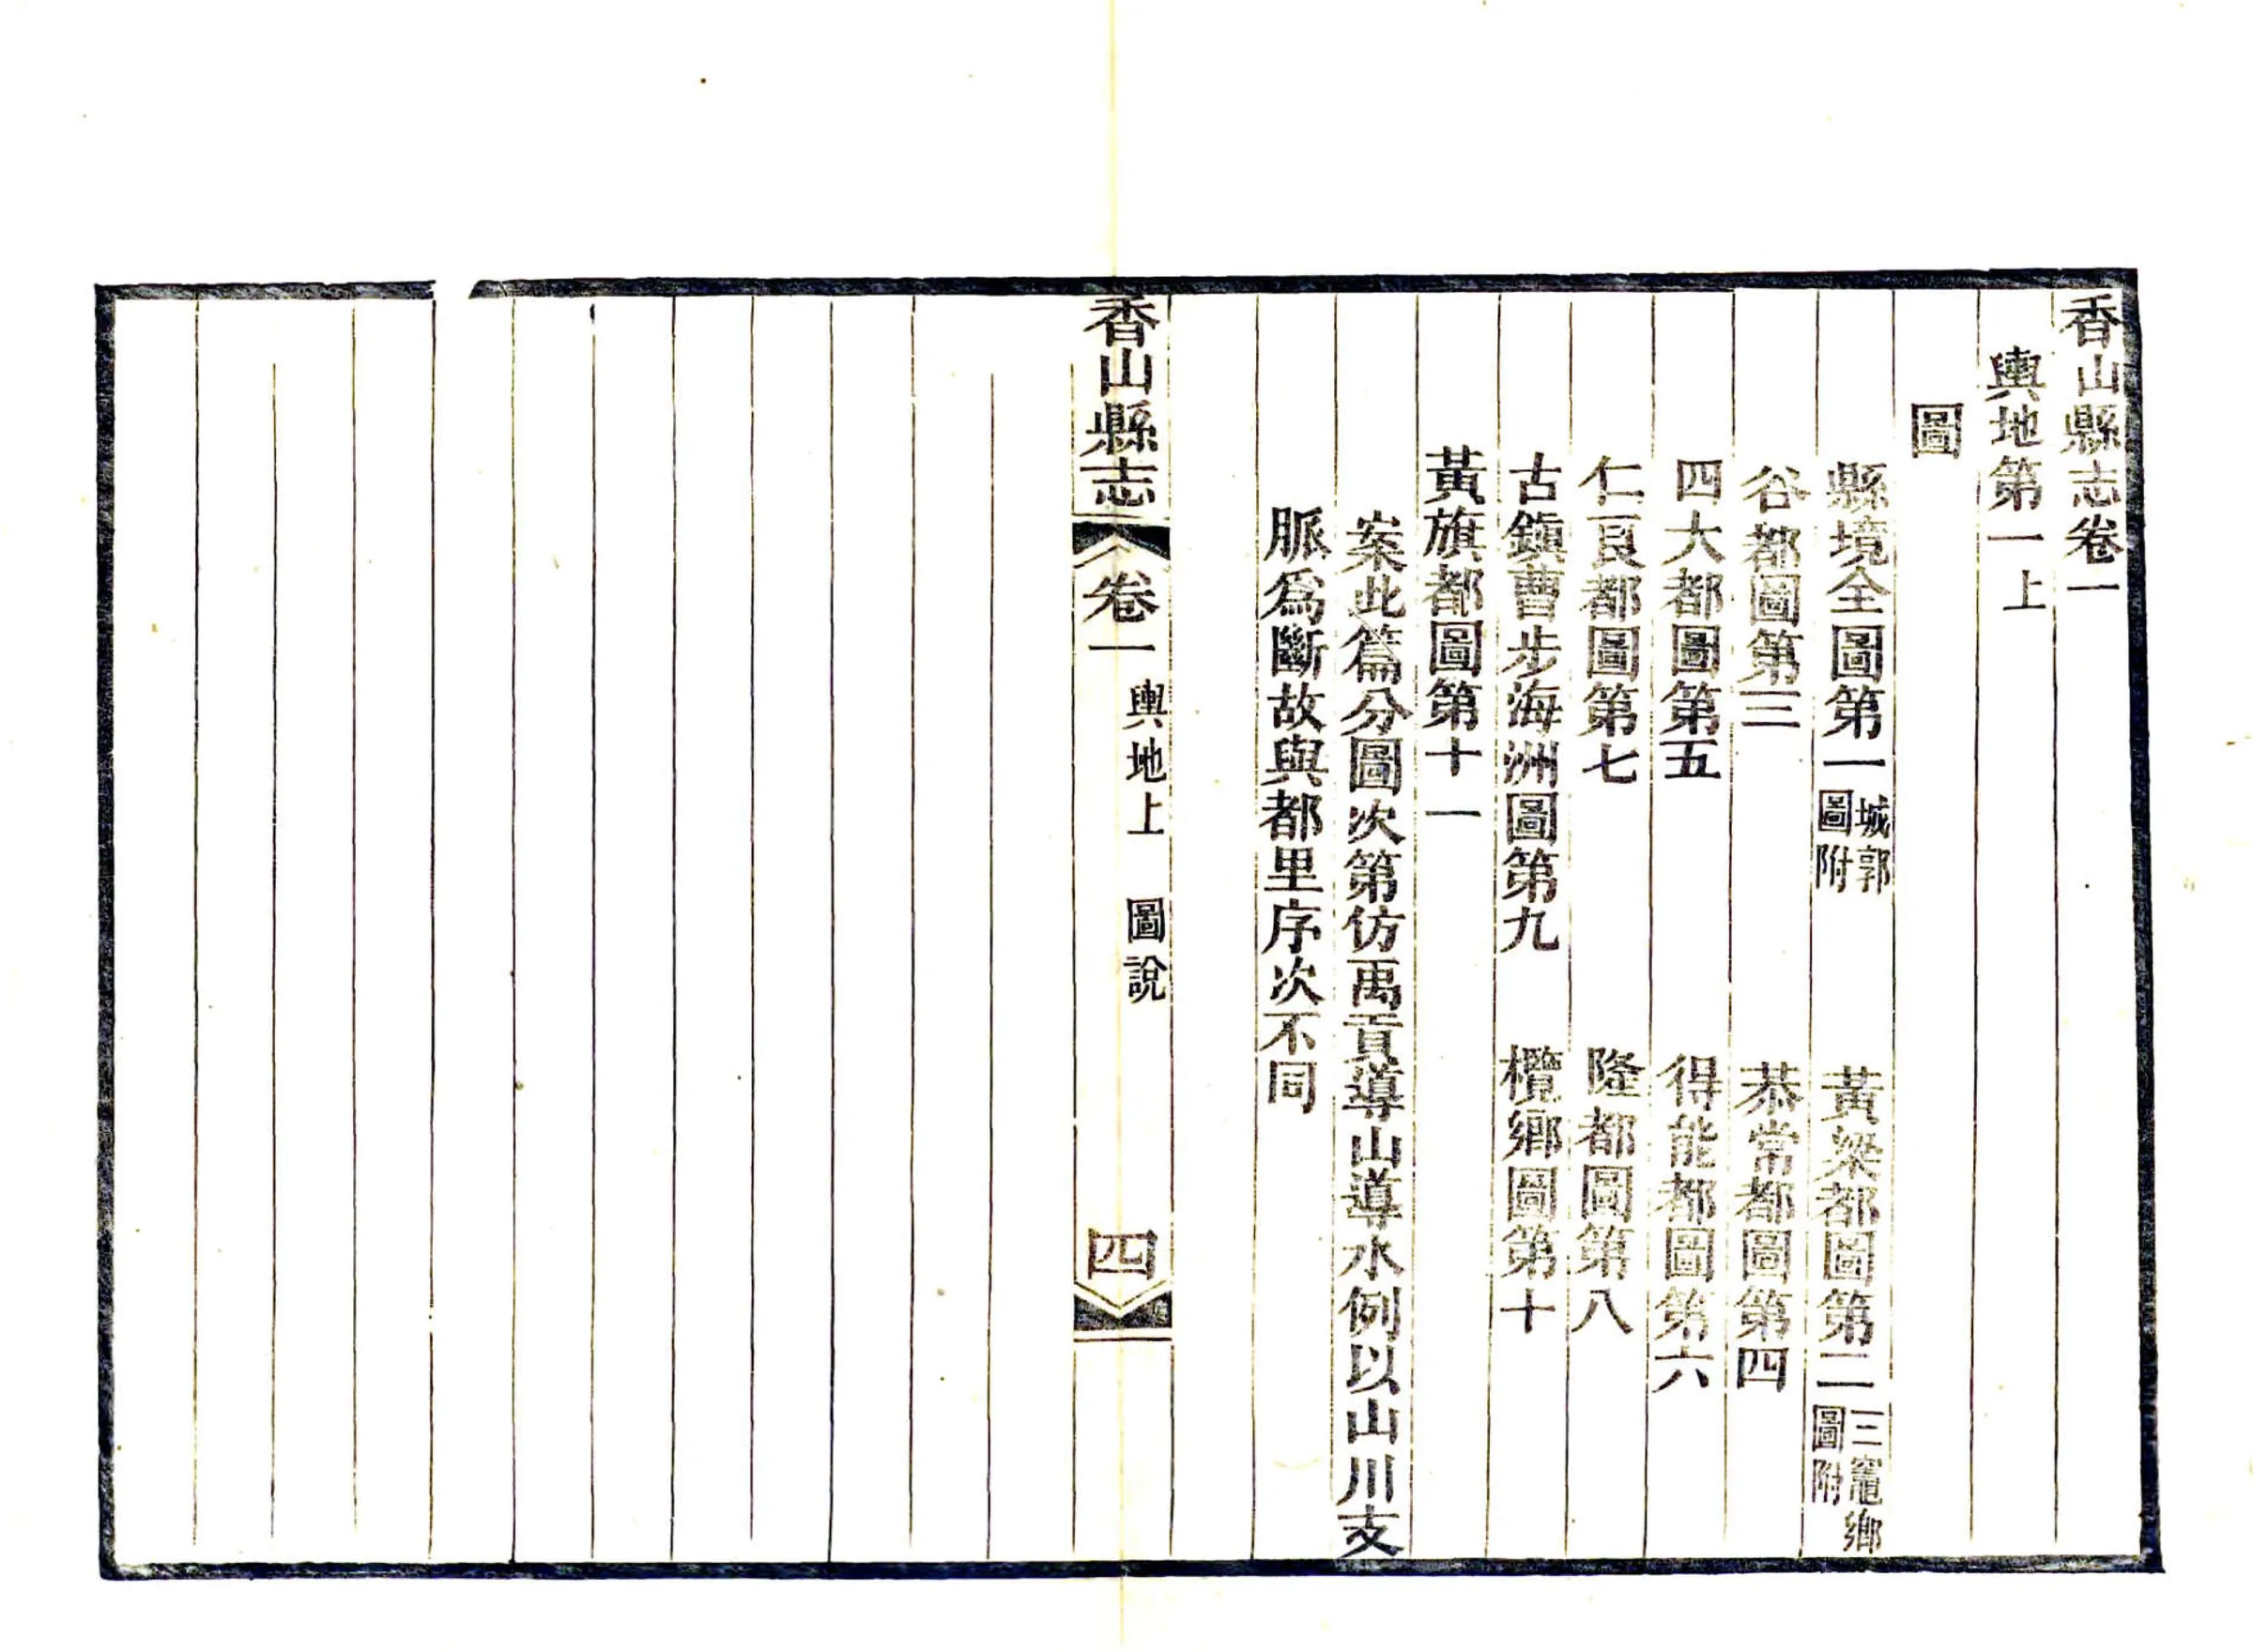 香山縣志卷一
輿地第一上
圖
縣境全圖第一 城郭圖附 黃梁都圖第二 三竈鄉圖附
谷都圖第三 恭常都圖第四
四大都圖第五 得能都圖第六
仁良都圖第七 隆都圖第八
古鎮曹步海洲圖第九 欖鄉圖第十
黃旗都圖第十一
案此篇分圖次第仿禹貢導山導水例以山川支
脈爲斷故與都里序次不同
香山縣志 卷一 輿地上 圖說 四